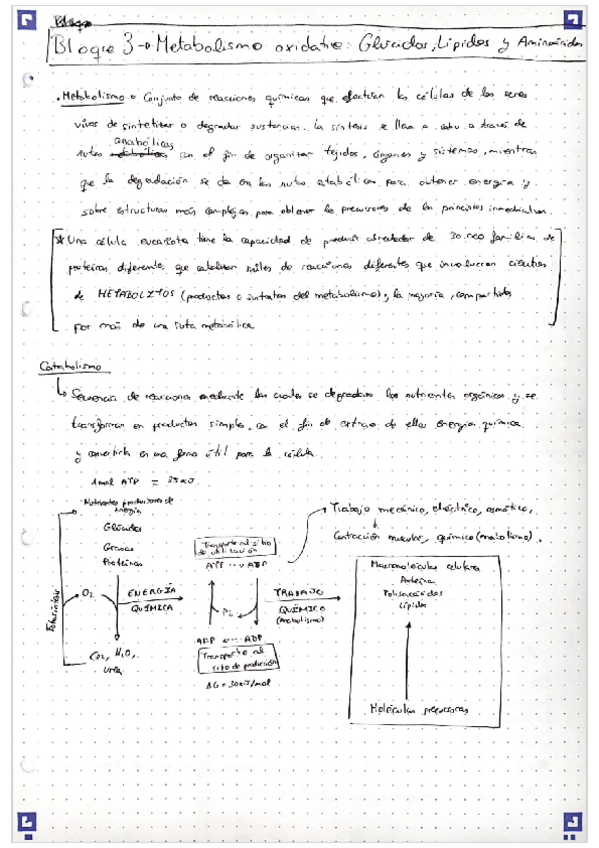 Bloque
Bloque 3 → Metabolismo oxidativo: Glúcidos, Lípidos y Aminoácidos
• Metabolismo → Conjunto de reacciones químicas que efectúan las células de los seres
vivos de sintetizar o degradar sustancias. La síntesis se lleva a cabo a través de
rutas anabólicas con el fin de organizar tejidos, órganos y sistemas, mientras
que la degradación se da en las rutas catabólicas para obtener energía y
sobre estructuras más complejas para obtener los precursores de los principios inmediatos.
* Una célula eucariota tiene la capacidad de producir alrededor de 30.000 familias de
proteínas diferentes, que catalizan miles de reacciones diferentes que involucran cientos
de METABOLITOS (productos o sustratos del metabolismo), la mayoría, compartidos
por más de una ruta metabólica
Catabolismo
↳ Secuencia de reacciones mediante las cuales se degradan los nutrientes orgánicos y se
transforman en productos simples, con el fin de extraer de ellos energía química
y convertirla en una forma útil para la célula.
1 mol ATP =
Nutrientes productores de
energía
Glúcidos
Grasas
Proteínas
O2
CO2, H2O,
urea
ENERGÍA
QUÍMICA
Transporte al sitio
de utilización
ATP ATP
Pi
ADP ADP
Transporte al
sitio de producción
ΔG = 30 kJ/mol
Trabajo mecánico, eléctrico, osmótico,
Contracción muscular, químico (metabolismo).
TRABAJO
QUÍMICO
(metabolismo)
Macromoléculas celulares
Proteínas
Polisacáridos
Lípidos
Moléculas precursoras